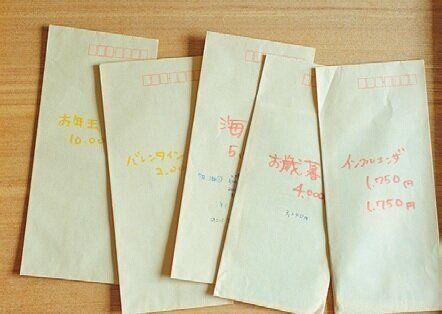 お年玉
10.00
バレンタイン
2.00
海
5
お歳暮
4,000
インフルエンザ
1,750円
1,750円